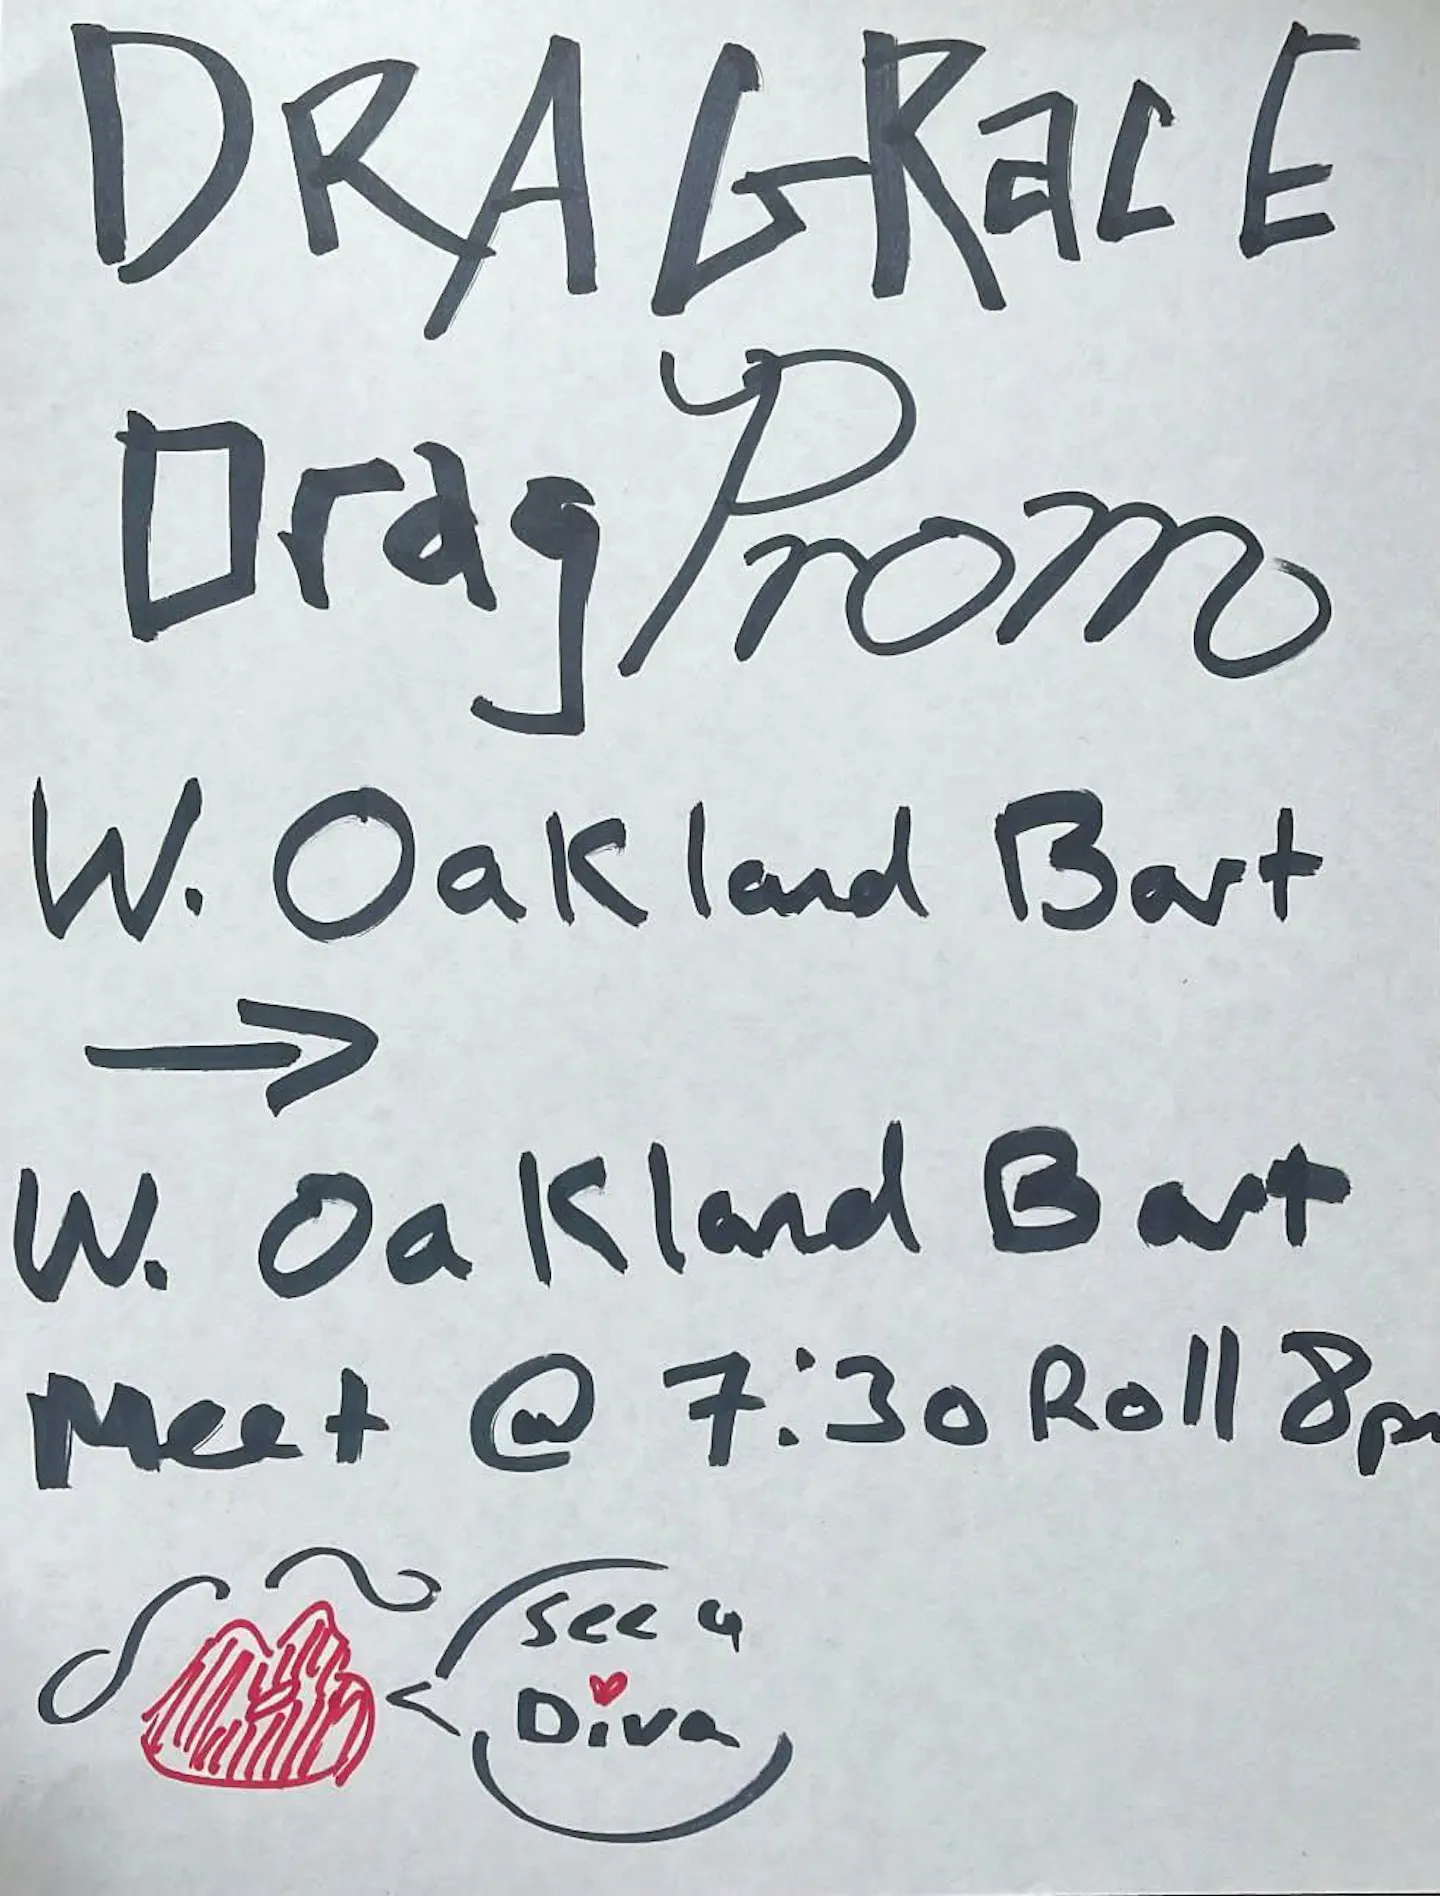 DRAG RacE
Drag Prom
W. Oakland Bart
→
W. Oakland Bart
Meet @ 7:30 Roll 8pm
See a
Diva